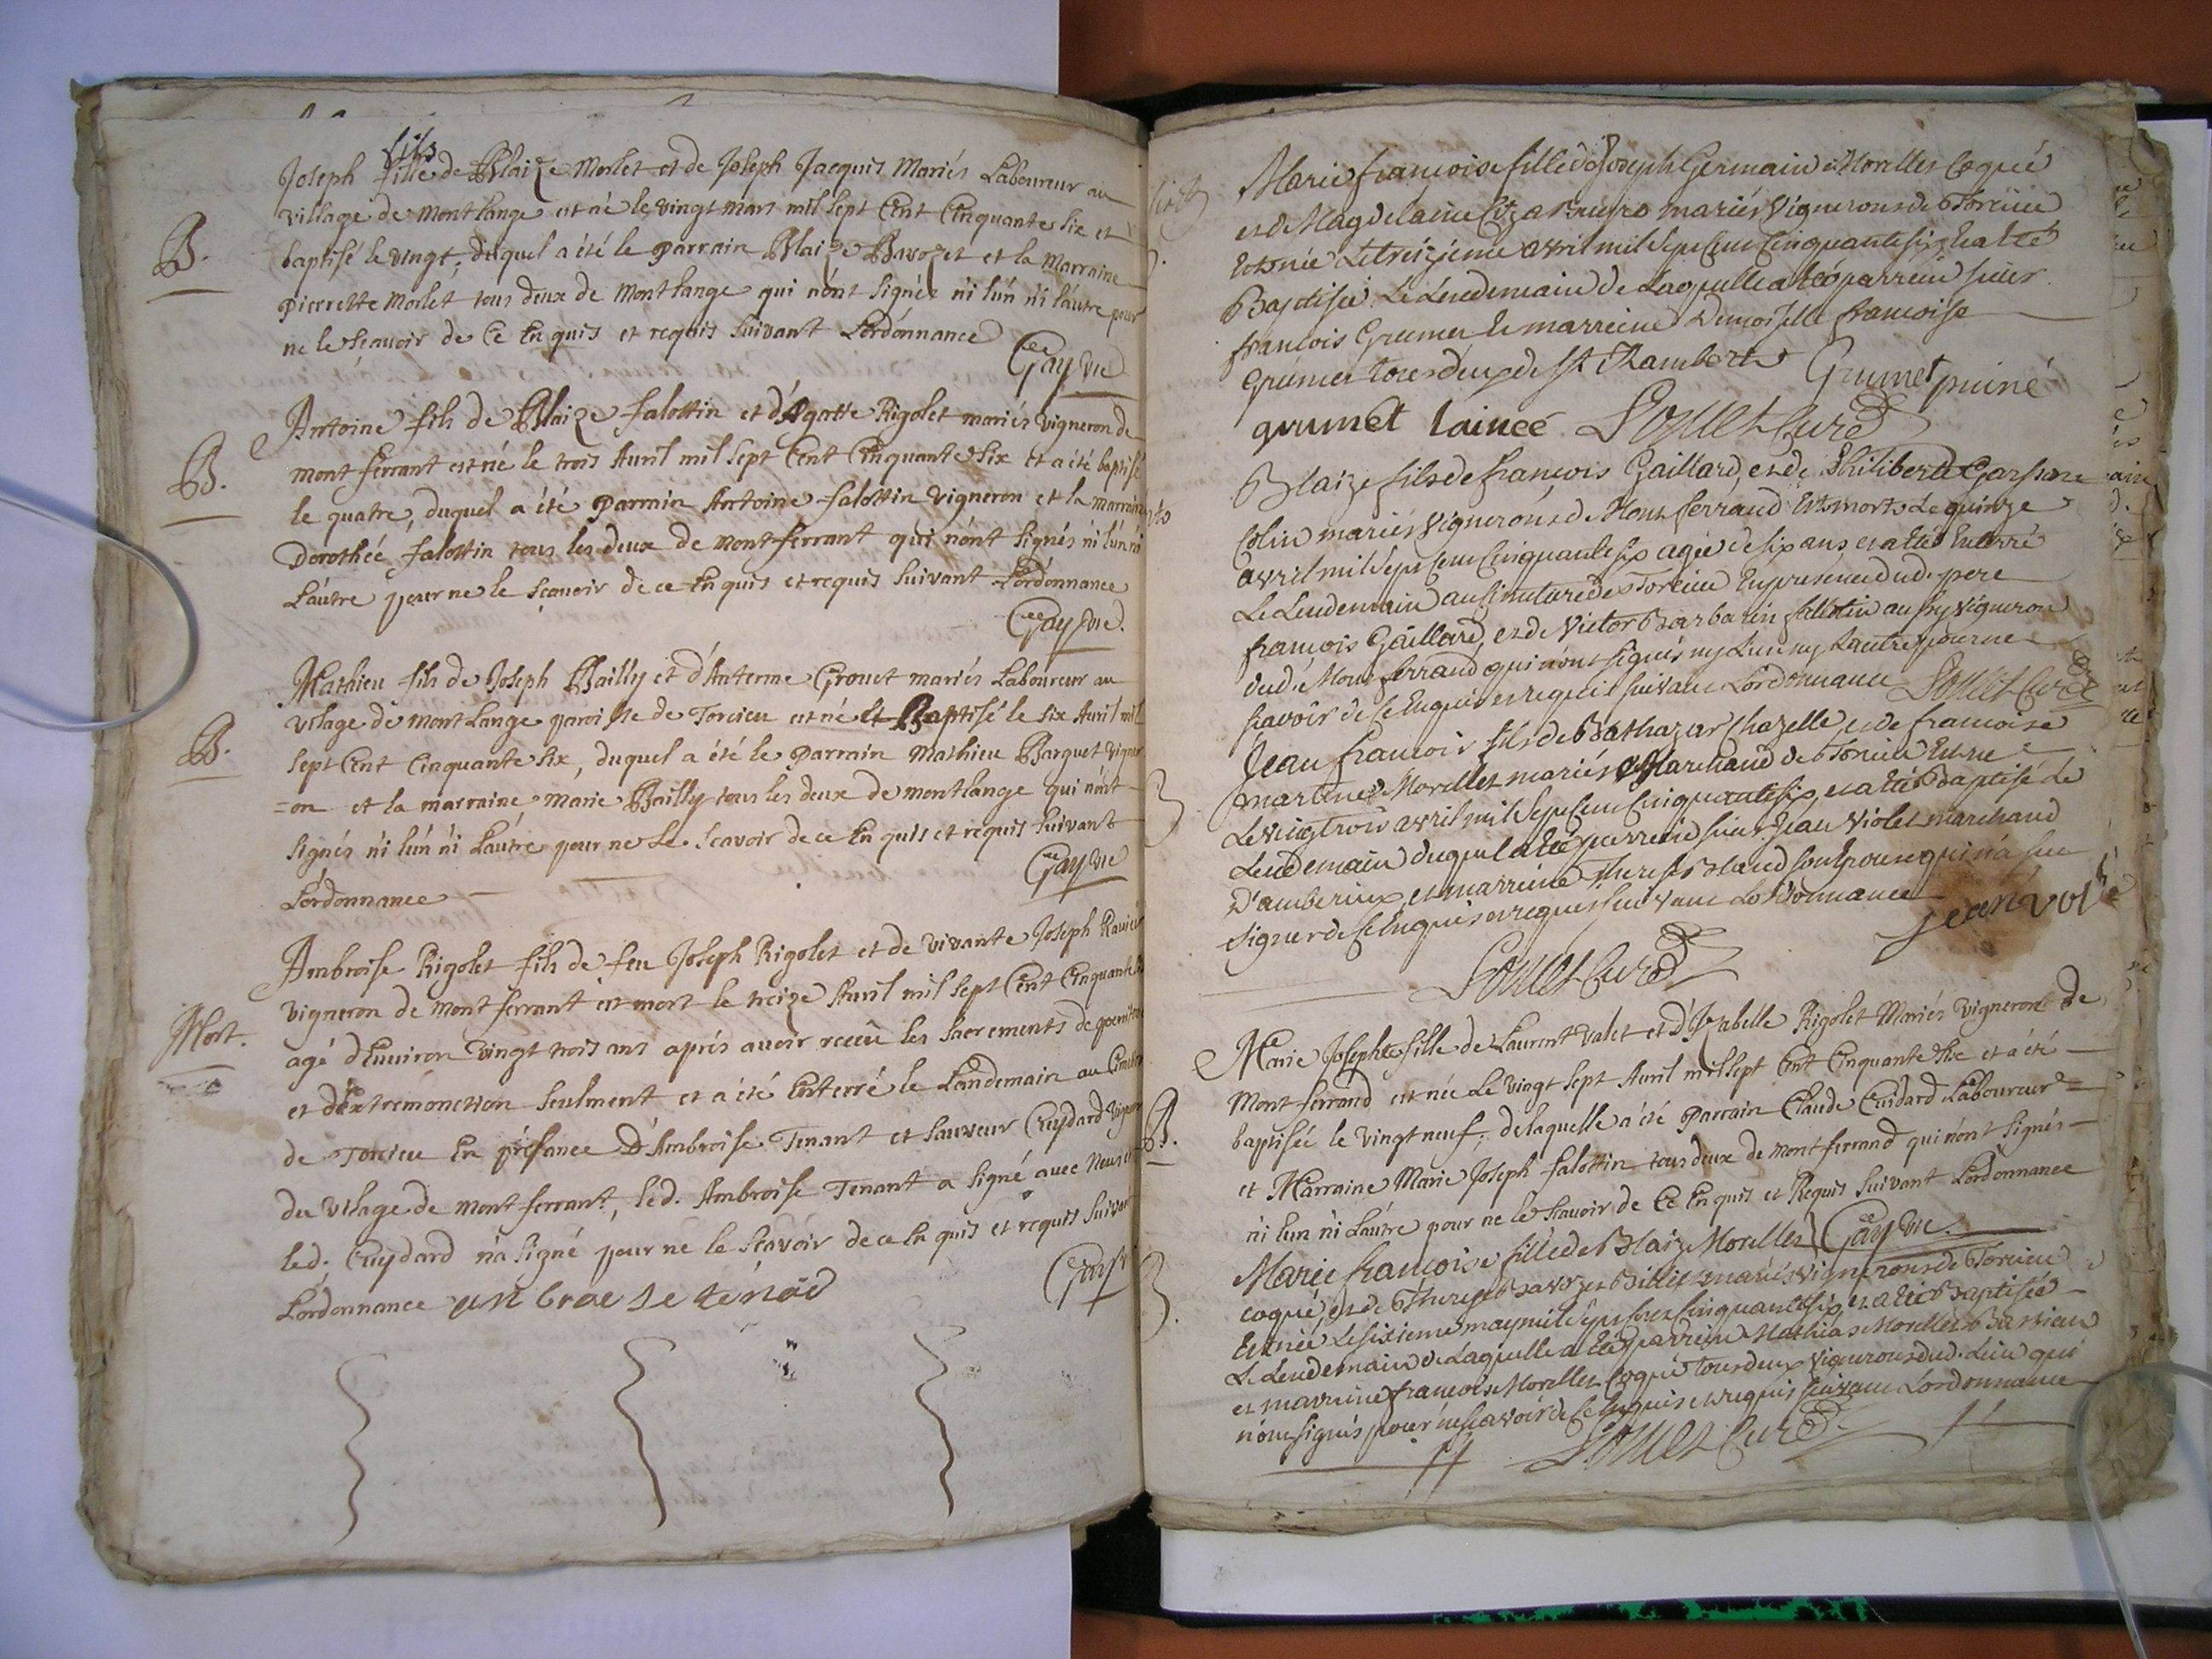 fils
Joseph fille de Blaize Morlet et de Joseph Jacquis Mariés Laboureur au
village de montlange est né le vingt mars mil sept Cent Cinquante six et
B.
baptisé le vingt, duquel a été le parrain Blaize Bavozet et la Marraine
pierrette Morlet tous deux de Montlange qui n'ont signée n'i l'un n'i l'autre pour
ne le scavoir de Ce Enquis et requis suivant L'ordonnance
Gay vie
Antoine fils de Blaize falottin et d'Agatte Rigolet mariés vigneron de
mont ferrant est né le trois Avril mil sept Cent Cinquante six et a été baptisé
B.
le quatre, duquel a été parrain Antoine falottin vigneron et la marraine
Dorothée falottin tous les deux de mont ferrant qui n'ont signés n'i l'un ni
L'autre pour ne le scavoir de ce Enquis et requis suivant L'ordonnance
Gay vie.
Mathieu fils de Joseph Bailly et d'Anterme Grouet mariés Laboureur au
vilage de montlange paroisse de Torcieu est né et Baptisé le six Avril mil
B.
sept Cent Cinquante six, duquel a été le parrain Mathieu Barquet vigner
=on et la marraine marie Bailly tous les deux de montlange qui n'ont
signés n'i l'un n'i L'autre pour ne Le scavoir de ce Enquis et requis suivant
Gay vie
L'ordonnance
Ambroise Rigolet fils de feu Joseph Rigolet et de vivante Joseph
vigneron de mont ferrant est mort le treize Avril mil sept Cent Cinquante
Mort.
agé d'Environ vingt trois ans aprés avoir receu les sacrements de
et d'Extremonction seulment et a été Enterré le Landemain au
de Torcieu En présance D'Ambroise Tenant et sauveur Cuydard
du vilage de mont ferrant, led. Ambroise Tenant a signé avec Nous et
led. Cuydard n'a signé pour ne le scavoir de ce Enquis et requis suivant
L'ordonnance
Gay vi
Marie francoise fille de Joseph Germain Morellet Coqué
et de Magdelaine mariés Vignerons de Torcieu
Est née Le treizieme avril mil sept cent Cinquante six et a été
Baptisée Le Lendemain de Laquelle a été parrein sieur
francois Grumet et marreine Demoiselle francoise
Grumet tous deux de St Rambert Grumet puiné
grumet lainée Curé
Blaize fils de francois Gaillard, et de Philiberte
Colin mariés Vignerons de Mont ferrand Est mort Le quinze
avril mil sept cent cinquante six agé de six ans et a été Enterré
Le Lendemain au simetiere de Torcieu En presence dud. pere
francois Gaillard, et de Victor Barbarin fallotin aussy vigneron
dud. Mont ferrand qui n'ont signés ny L'un ny L'autre pour ne
scavoir de ce Enquis et requis suivant L'ordonnance Curé
Jean francois fils de Bathazar Chazelle et de francoise
martine Morellet mariés Marchand de Torcieu Est né
Le vingt trois avril mil sept cent cinquante six, et a été Baptisé Le
Lendemain duquel a été parrein sieur Jean Violet marchand
D'amberieux, et marreine
signer de ce Enquis et requis suivant L'ordonnance
Curé
Marie Josephte fille de Laurent Valet et d'Izabelle Rigolet Mariés vigneron de
Mont ferrand est née Le vingt sept Avril mil sept Cent Cinquante six et a été
B.
baptisée le vingt neuf, de laquelle a été parrain Claude Cuidard Laboureur
et Marraine Marie Joseph falottin tous deux de mont ferrand qui n'ont signés
n'i l'un n'i L'autre pour ne le scavoir de Ce Enquis et Requis suivant L'ordonnance
Marie francoise fille de Blaize Morellet Gay vie.
coqué, et de Therese Bavozet mariés vignerons de Torcieu
Est née Le sixieme may mil sept cent cinquante six, et a été Baptisée
Le Lendemain de Laquelle a été parrein Mathias Morellet
et marreine francoise Morellet Coqué Tous deux Vignerons dud. Lieu qui
n'ont signés pour ne scavoir de ce Enquis et requis suivant L'ordonnance
Curé